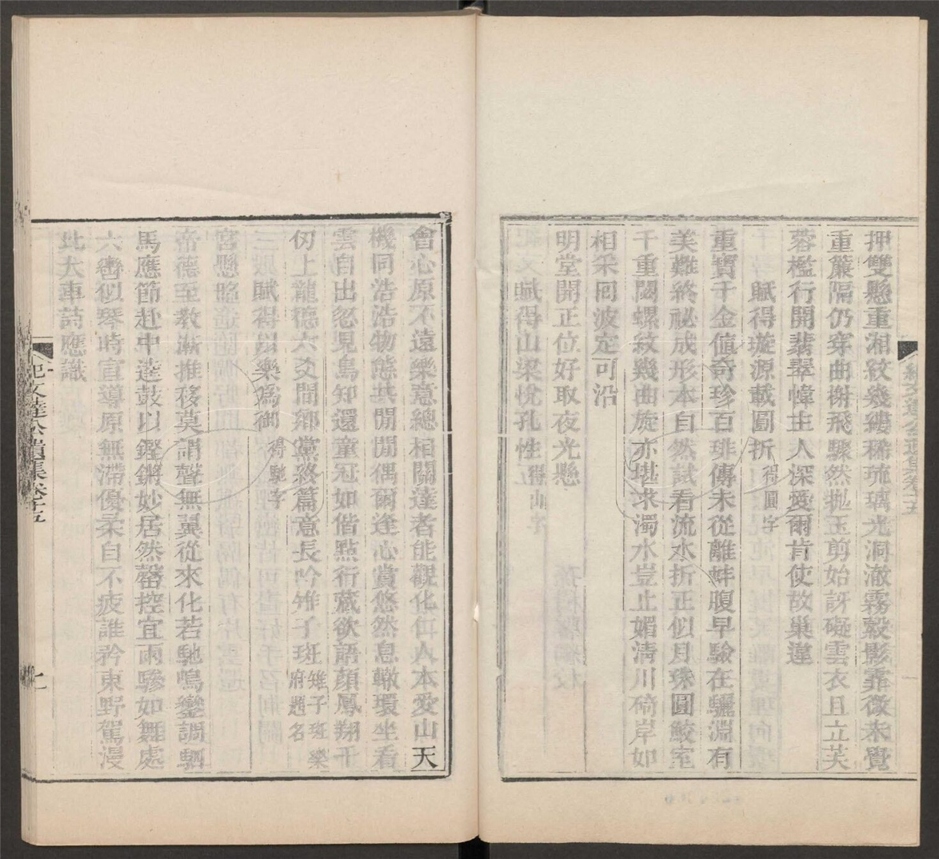 押雙懸重湘紋幾縷稀琉璃光洞澈霧縠影霏微未覺
重簾隔仍穿曲榭飛驟然拋玉剪始訝礙雲衣且立芙
蓉檻行開翡翠幃主人深愛爾肯使故巢違
賦得璇源載圓折得圓字
重寶千金值奇珍百琲傳未從離蚌腹早驗在驪淵有
美難終祕成形本自然試看流水折正似月珠圓鮫室
千重閟螺紋幾曲旋亦堪求濁水豈止媚淸川倚岸如
相采回波定可沿
明堂開正位好取夜光懸
賦得山梁悅孔性得山字
會心原不遠樂意總相關達者能觀化仁人本愛山天
機同浩浩物態共閒閒偶爾逢心賞悠然息轍環坐看
雲自出忽見鳥知還童冠如偕點行藏欲語顔鳳翔千
仞上龍德六爻間鄕黨終篇意長吟雉子班雉子班樂府題名
賦得以樂爲御得馳字
帝德至敎漸推移莫謂聲無翼從來化若馳鳴鑾調駟
馬應節赴中逵鼓以鏗鏘妙居然罄控宜兩驂如舞處
六轡似琴時直導原無滯優柔自不疲誰矜東野駕漫
此大車詩應識
紀文達公遺集卷十五